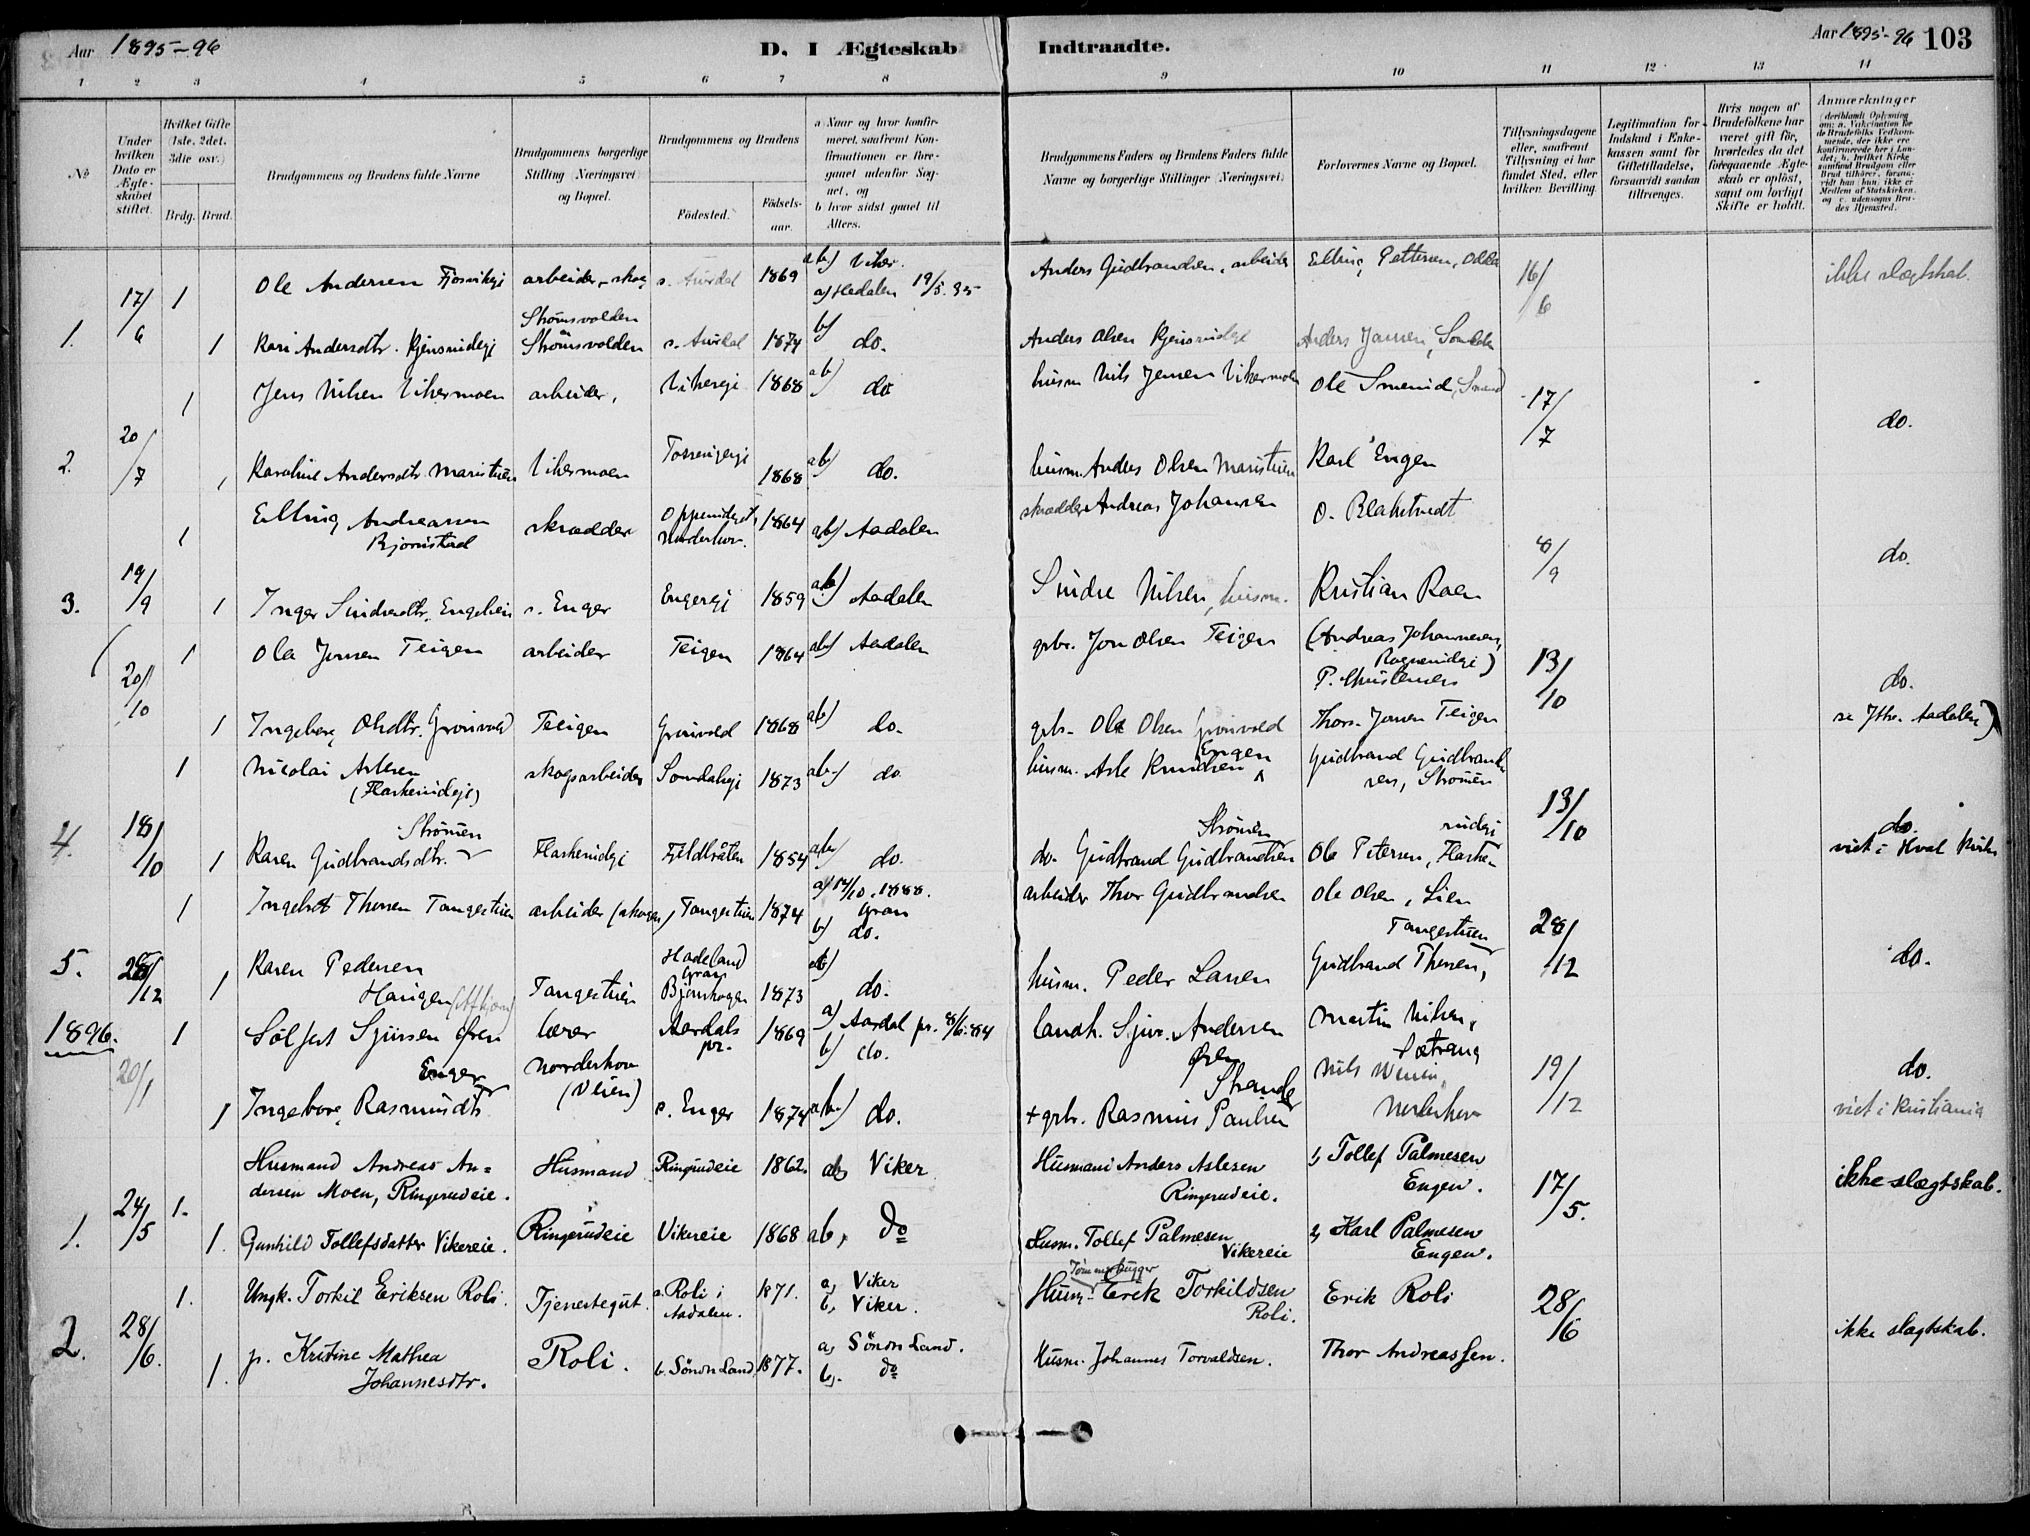 Aar 1895-96
D. I Ægteskab
Indtraadte.
Aar 1895-96 103
1 2 3 4 5 6 7 8 9 10 11 12 13 14
No
Under hvilken Dato er Ægteskabet stiftet.
Hvilket Gifte (1ste, 2det, 3die osv.)
Brdg. Brud.
Brudgommens og Brudens fulde Navne
Brudgommens borgerlige Stilling (Næringsvei) og Bopæl.
Brudgommens og Brudens
Fødested.
Fødselsaar.
a) Naar og hvor konfirmeret, saafremt Konfirmationen er foregaaet udenfor Sognet, og
b) hvor sidst gaaet til Alters.
Brudgommens Faders og Brudens Faders fulde Navne og borgerlige Stillinger (Næringsvei)
Forlovernes Navne og Bopæl.
Tillysningsdagene eller, saafremt Tillysning ei har fundet Sted, efter hvilken Bevilling.
Legitimation for Indskud i Enkekassen samt for Giftetilladelse, forsaavidt saadan tiltrænges.
Hvis nogen af Brudefolkene har været gift før, hvorledes da det foregaaende Ægteskab er opløst, samt om lovligt Skifte er holdt.
Anmærkninger
17/6 1 Ole Andersen arbeider, skog s. Aurdal 1869 ab) Viker. a) Hedalen 19/5. 85 Anders Gudbrandsen, arbeider Elling Pettersen, 16/6 ikke slægtskab.
Strømsvolden
1. 1 Kari Andersdtr. Strømsvolden s. Aurdal 1874 b) do. Anders Olsen Anders Jansen,
1 Jens Nilsen Vikermoen arbeider, Vikereje 1868 ab) do husm. Nils Jensen Vikermoen Ole Smerud, 17/7 do.
2. 20/7 1 Karoline Andersdtr. Maristuen Vikermoen 1868 ab) do. husm. Anders Olsen Maristuen Karl Engen
1 Elling Andreassen skrædder 1864 ab) Aadalen skrædder Andreas Johansen O. Blakstvedt
Bjørnstad Norderhov.
8/9 do.
3. 19/9 1 Inger Sindresdtr. Engeheim s. Enger Engereje 1859 ab) Aadalen Sindre Nilsen, husm. Kristian Roen
1 Ola Jonsen Teigen arbeider Teigen 1864 ab) Aadalen gbr. Jon Olsen Teigen (Andreas Johannesen,
20/10 P. Christensen 13/10 do.
1 Ingeborg Olsdtr. Grønvold Teigen Grønvold 1868 ab) do. gbr. Ole Olsen Grønvold Thorn. Jonsen Teigen se Ytre Aadalen)
1 Nicolai Aslesen skogsarbeider 1873 ab) do husm. Asle Knudsen Engen Gudbrand Gudbrandsen, Strømen
(Flaskerudeje)
Strømen Strømen 13/10 do.
4. 18/10 1 Karen Gudbrandsdtr. Flaskerudeje 1854 ab) do. do. Gudbrand Gudbrandsen Ole Petersen, Flaskerudeje viet i Hval kirke
1 Ingebret Thorsen Tangestuen arbeider (skogen) Tangestuen 1874 a) 14/10. 1888. Gran b) do. arbeider Thor Gudbrandsen Ole Olsen, Lien
Tangestuen 28/12 do.
5. 28/12 1 Karen Pedersen Haugen Tangestuen Hadeland Gran Bjønskogen 1873 ab) do. husm. Peder Larsen Gudbrand Thorsen,
1896. 1 Sølfest Sjursen Øren lærer Aardals pr. 1869 a) Aardal pr. 8/6.84 b) do. landh. Sjur Andersen Øren Martin Nilsen, Sætrang
20/1 Enger Norderhov (Veien) Strande Nils 19/12 do.
1 Ingeborg Rasmusdtr s. Enger 1874 ab) do. + gbr. Rasmus Paulsen Norderhov viet i Kristiania
Husmand Andreas An= Husmand Ringerudeie 1862. ab, Viker Husmand Anders Aslesen 1, Tollef Palmesen
24/5 1. dersen Moen, Ringerudeie. Ringerudeie. Engen. 17/5. ikke slægtskab.
1. 1. Gunhild Tollefsdatter Vikereie. Ringerudeie Vikereie 1868 ab, do Husm. Tollef Palmesen Vikereie 2, Karl Palmesen Engen.
1. Ungk. Torkil Eriksen Roli. Tjenestegut. a. Roli i Aadalen. 1871. a, Viker b, Viker. Husm. Tømmerhugger Erik Torkildsen Roli. Erik Roli 28/6
2. 28/6. 1. p. Kristine Mathea Johannesdtr. Roli. b. Søndr Land 1877. a, Søndr Land. b, do Husm. Johannes Torvaldsen. Thor Andreassen. ikke slægtskab.